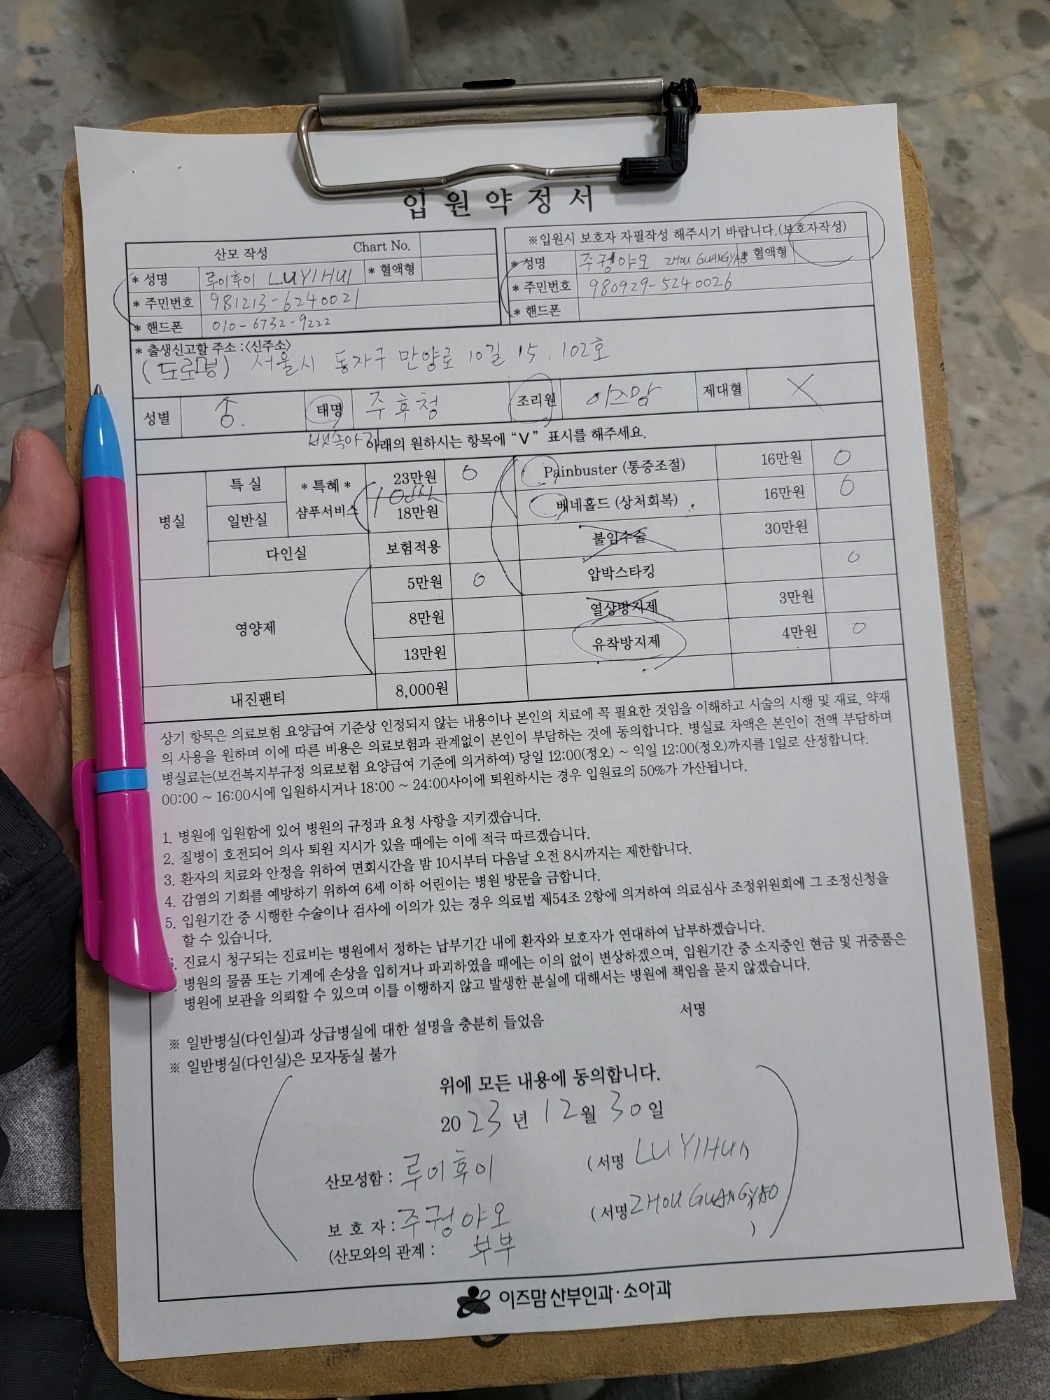 입원약정서
산모 작성 Chart No.
* 성명 루이후이 LU YI HUI * 혈액형
* 주민번호 981213-6240021
* 핸드폰 010-6732-9222
※입원시 보호자 자필작성 해주시기 바랍니다.(보호자작성)
* 성명 주궝야오 ZHOU GUANGYAO * 혈액형
* 주민번호 980929-5240026
* 핸드폰
* 출생신고할 주소 :<신주소>
(도로명) 서울시 동작구 만양로 10길 15, 102호
성별 태명 주후청 조리원 이즈맘 제대혈 X
아래의 원하시는 항목에 "V" 표시를 해주세요.
병실 특 실 * 특혜 * 샴푸서비스 23만원 O
일반실 18만원
다인실 보험적용
영양제 5만원 O
8만원
13만원
내진팬티 8,000원
Painbuster (통증조절) 16만원 O
베네홀드 (상처회복) 16만원 O
불임수술 30만원
압박스타킹 O
열상방지제 3만원
유착방지제 4만원 O
상기 항목은 의료보험 요양급여 기준상 인정되지 않는 내용이나 본인의 치료에 꼭 필요한 것임을 이해하고 시술의 시행 및 재료, 약재
의 사용을 원하며 이에 따른 비용은 의료보험과 관계없이 본인이 부담하는 것에 동의합니다. 병실료 차액은 본인이 전액 부담하며
병실료는(보건복지부규정 의료보험 요양급여 기준에 의거하여) 당일 12:00(정오) ~ 익일 12:00(정오)까지를 1일로 산정합니다.
00:00 ~ 16:00시에 입원하시거나 18:00 ~ 24:00사이에 퇴원하시는 경우 입원료의 50%가 가산됩니다.
1. 병원에 입원함에 있어 병원의 규정과 요청 사항을 지키겠습니다.
2. 질병이 호전되어 의사 퇴원 지시가 있을 때에는 이에 적극 따르겠습니다.
3. 환자의 치료와 안정을 위하여 면회시간을 밤 10시부터 다음날 오전 8시까지는 제한합니다.
4. 감염의 기회를 예방하기 위하여 6세 이하 어린이는 병원 방문을 금합니다.
5. 입원기간 중 시행한 수술이나 검사에 이의가 있는 경우 의료법 제54조 2항에 의거하여 의료심사 조정위원회에 그 조정신청을
할 수 있습니다.
진료시 청구되는 진료비는 병원에서 정하는 납부기간 내에 환자와 보호자가 연대하여 납부하겠습니다.
병원의 물품 또는 기계에 손상을 입히거나 파괴하였을 때에는 이의 없이 변상하겠으며, 입원기간 중 소지중인 현금 및 귀중품은
병원에 보관을 의뢰할 수 있으며 이를 이행하지 않고 발생한 분실에 대해서는 병원에 책임을 묻지 않겠습니다.
※ 일반병실(다인실)과 상급병실에 대한 설명을 충분히 들었음 서명
※ 일반병실(다인실)은 모자동실 불가
위에 모든 내용에 동의합니다.
2023년 12월 30일
산모성함 : 루이후이 (서명 LU YI HUI
보 호 자 : 주궝야오 (서명 ZHOU GUANGYAO
(산모와의 관계 : 부부 )
이즈맘 산부인과·소아과